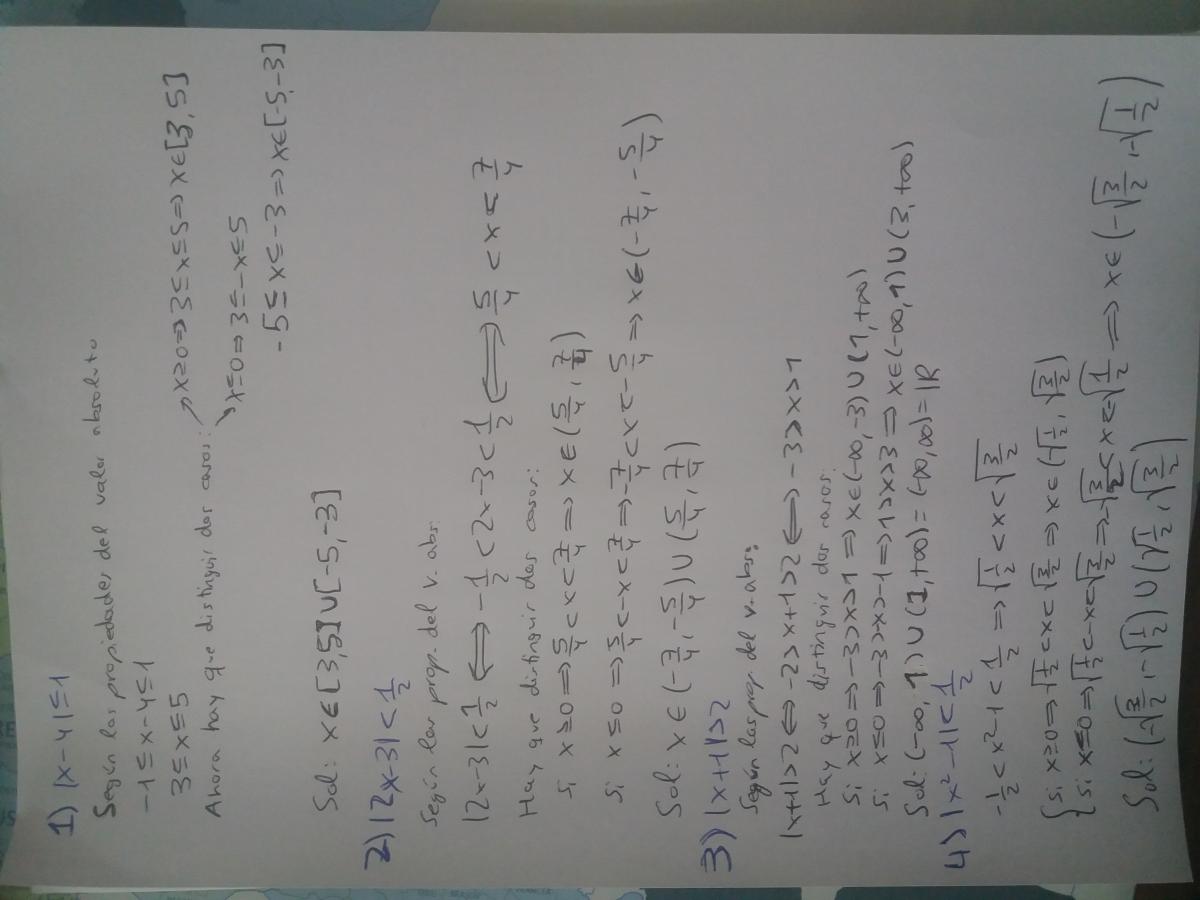 1) |x-4|≤1
Según las propiedades del valor absoluto
-1≤x-4≤1
3≤x≤5
Ahora hay que distinguir dos casos: ↗x≥0⇒3≤x≤5⇒x∈[3,5]
↘x≤0⇒3≤-x≤5
-5≤x≤-3⇒x∈[-5,-3]
Sol: x∈[3,5]∪[-5,-3]
2) |2x-3|<1/2
Según las prop. del v. abs.
|2x-3|<1/2 ⟺ -1/2<2x-3<1/2 ⟺ 5/4<x<7/4
Hay que distinguir dos casos:
Si x≥0⇒5/4<x<7/4⇒x∈(5/4,7/4)
Si x≤0⇒5/4<-x<7/4⇒-7/4<x<-5/4⇒x∈(-7/4,-5/4)
Sol: x∈(-7/4,-5/4)∪(5/4,7/4)
3) |x+1|>2
Según las prop. del v. abs:
|x+1|>2⟺-2>x+1>2⟺-3>x>1
Hay que distinguir dos casos:
Si x≥0⇒-3>x>1⇒x∈(-∞,-3)∪(1,+∞)
Si x≤0⇒-3>-x>-1⇒1>x>3⇒x∈(-∞,1)∪(3,+∞)
Sol: (-∞,1)∪(1,+∞)=(-∞,∞)=ℝ
4) |x²-1|<1/2
-1/2<x²-1<1/2⇒√(1/2)<x<√(3/2)
{ Si x≥0⇒√(1/2)<x<√(3/2)⇒x∈(√(1/2),√(3/2))
Si x≤0⇒√(1/2)<-x<√(3/2)⇒-√(3/2)<x<-√(1/2)⇒x∈(-√(3/2),-√(1/2))
Sol: (-√(3/2),-√(1/2))∪(√(1/2),√(3/2))